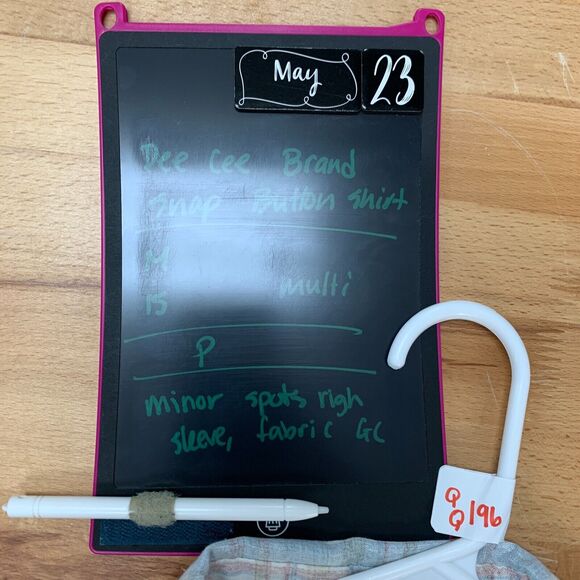 May 23
Dee Cee Brand
Snap Button Shirt
M
15 multi
P
minor spots righ
sleeve, fabric GC
Q
Q196